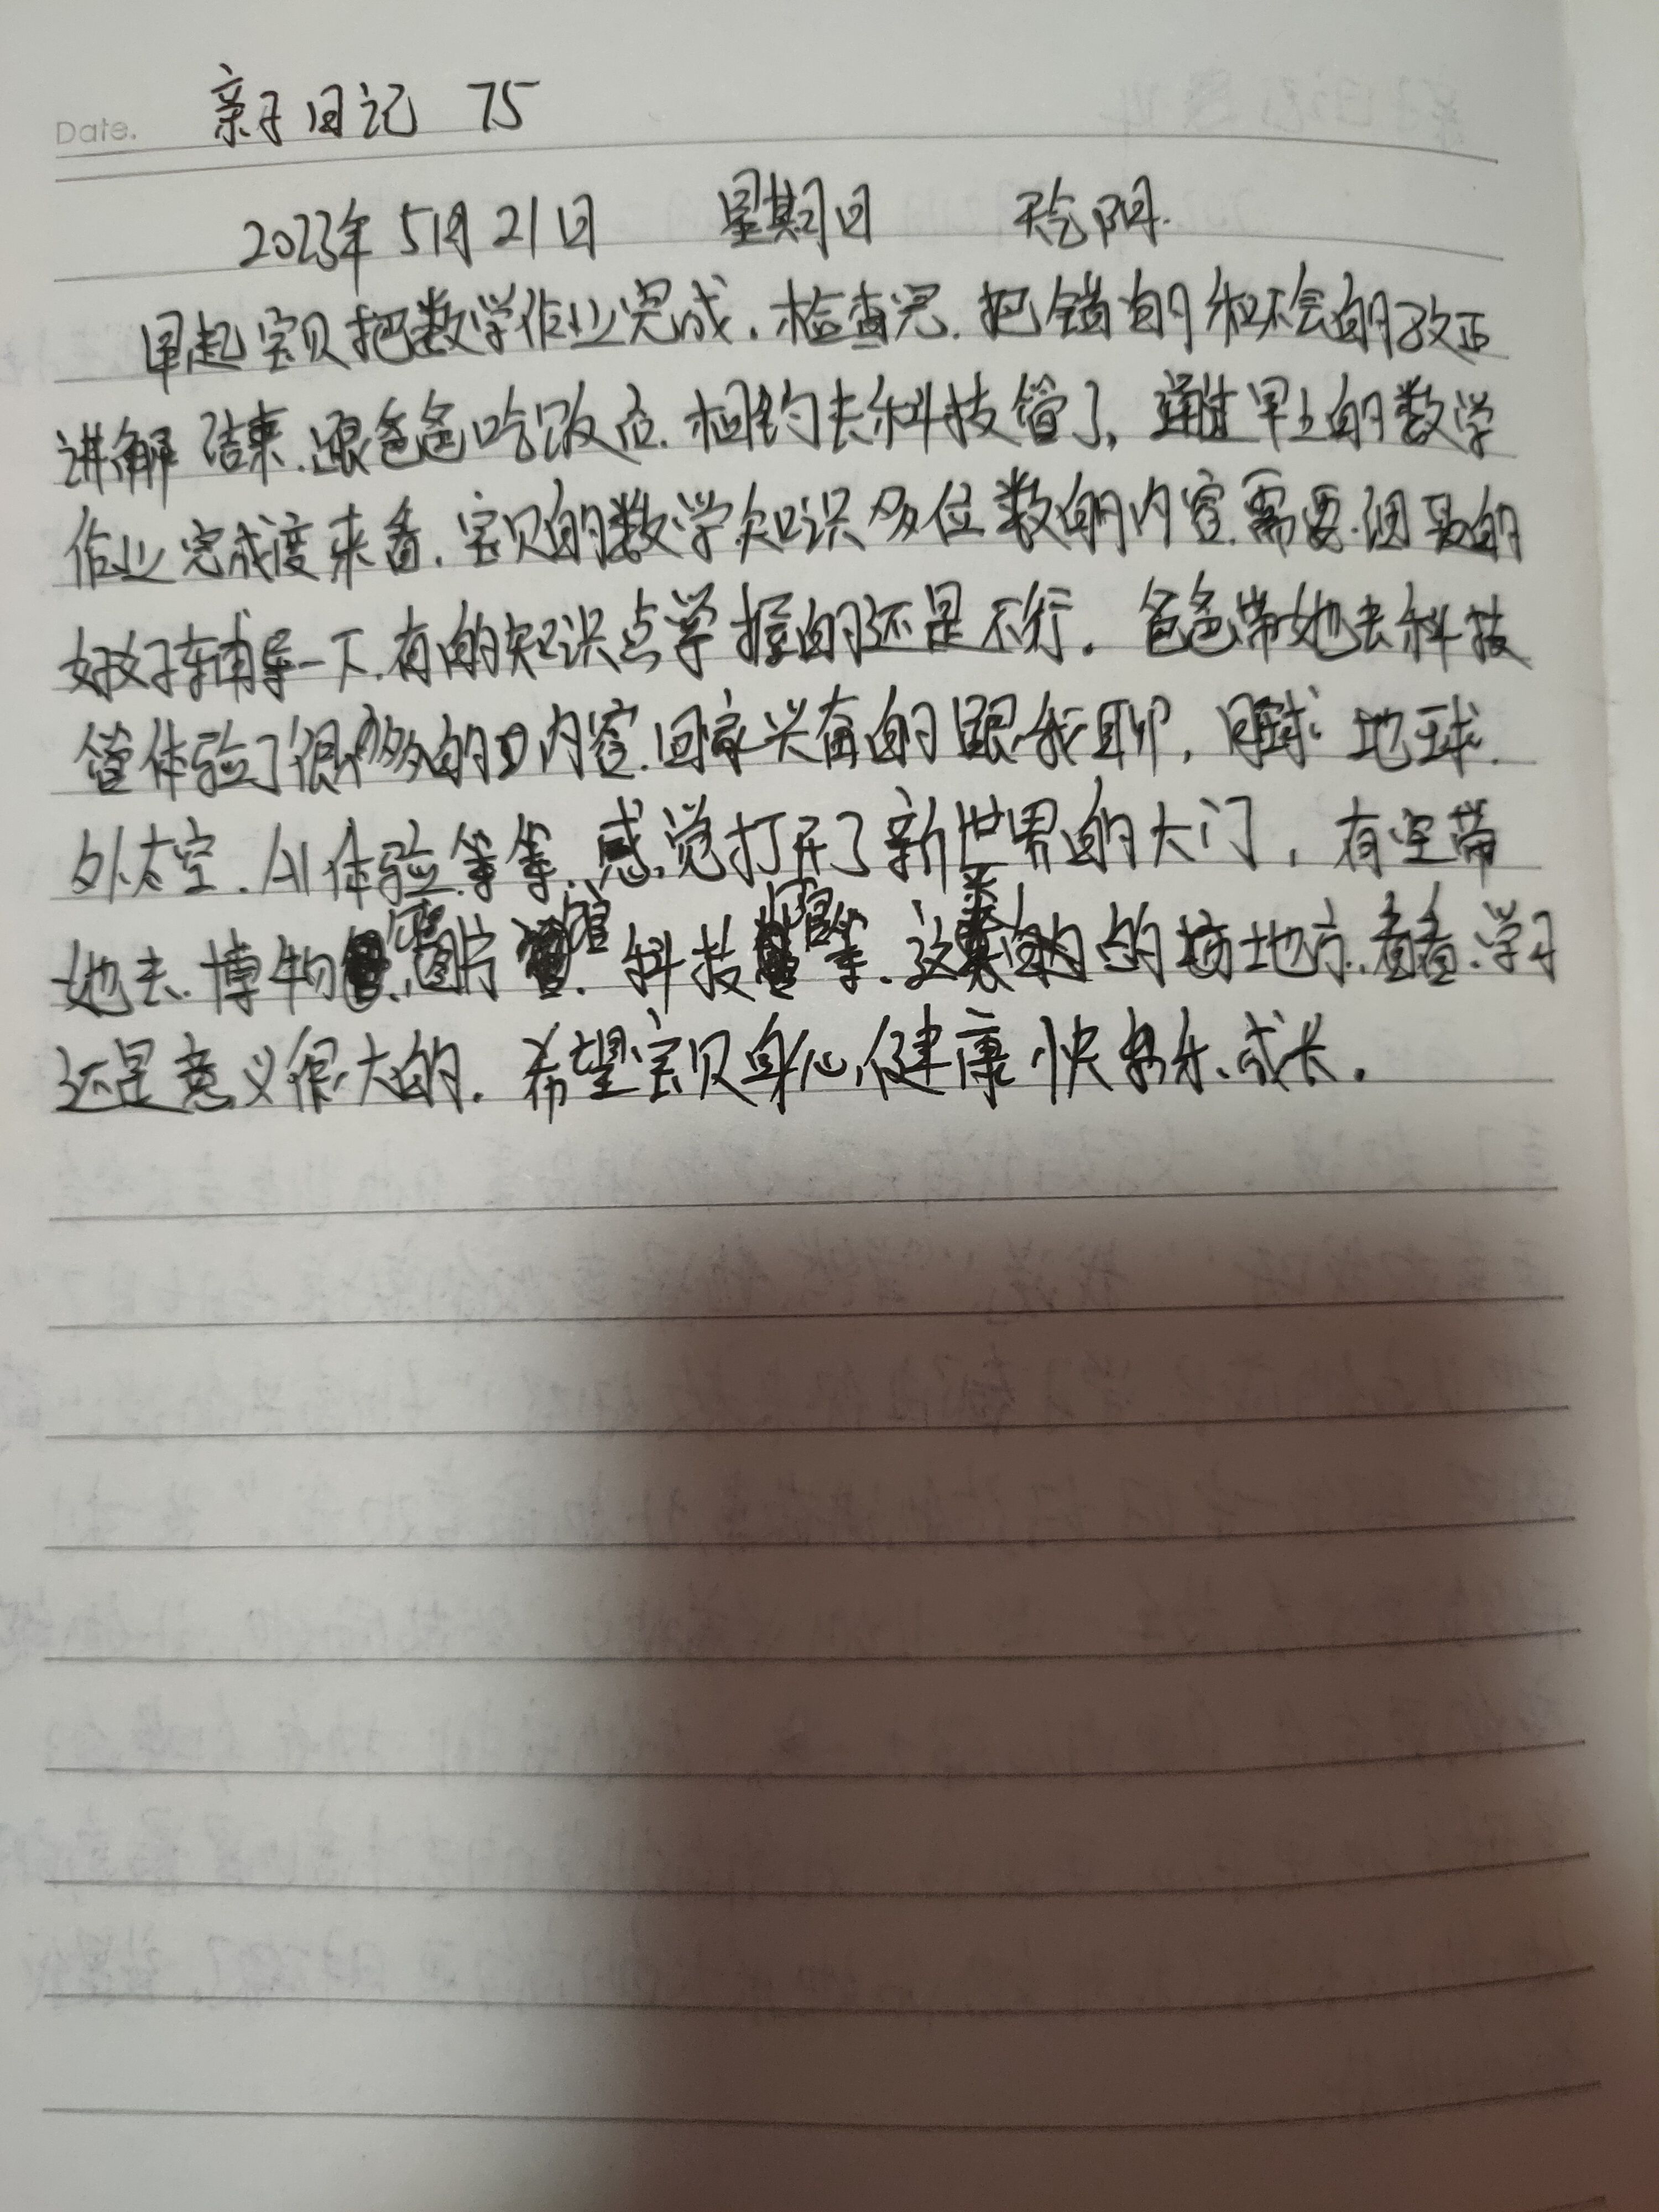 Date. 亲子日记 75
2023年5月21日 星期日 天气阴.
早起宝贝把数学作业完成.检查完.把错的和不会的改正
讲解结束.跟爸爸吃饭店.相约去科技管了,通过早上的数学
作业完成度来看.宝贝的数学知识多位数的内容.需要.的
好好辅导一下.有的知识点掌握的还是不行.爸爸带她去科技
管体验了很多的内容.回家兴奋的跟我聊,月球 地球.
外太空.AI体验.等等.感觉打开了新世界的大门,有空带
她去.博物馆.图片馆.科技馆等.这类的地方.看看.学习
还是意义很大的.希望宝贝身心健康快乐成长.